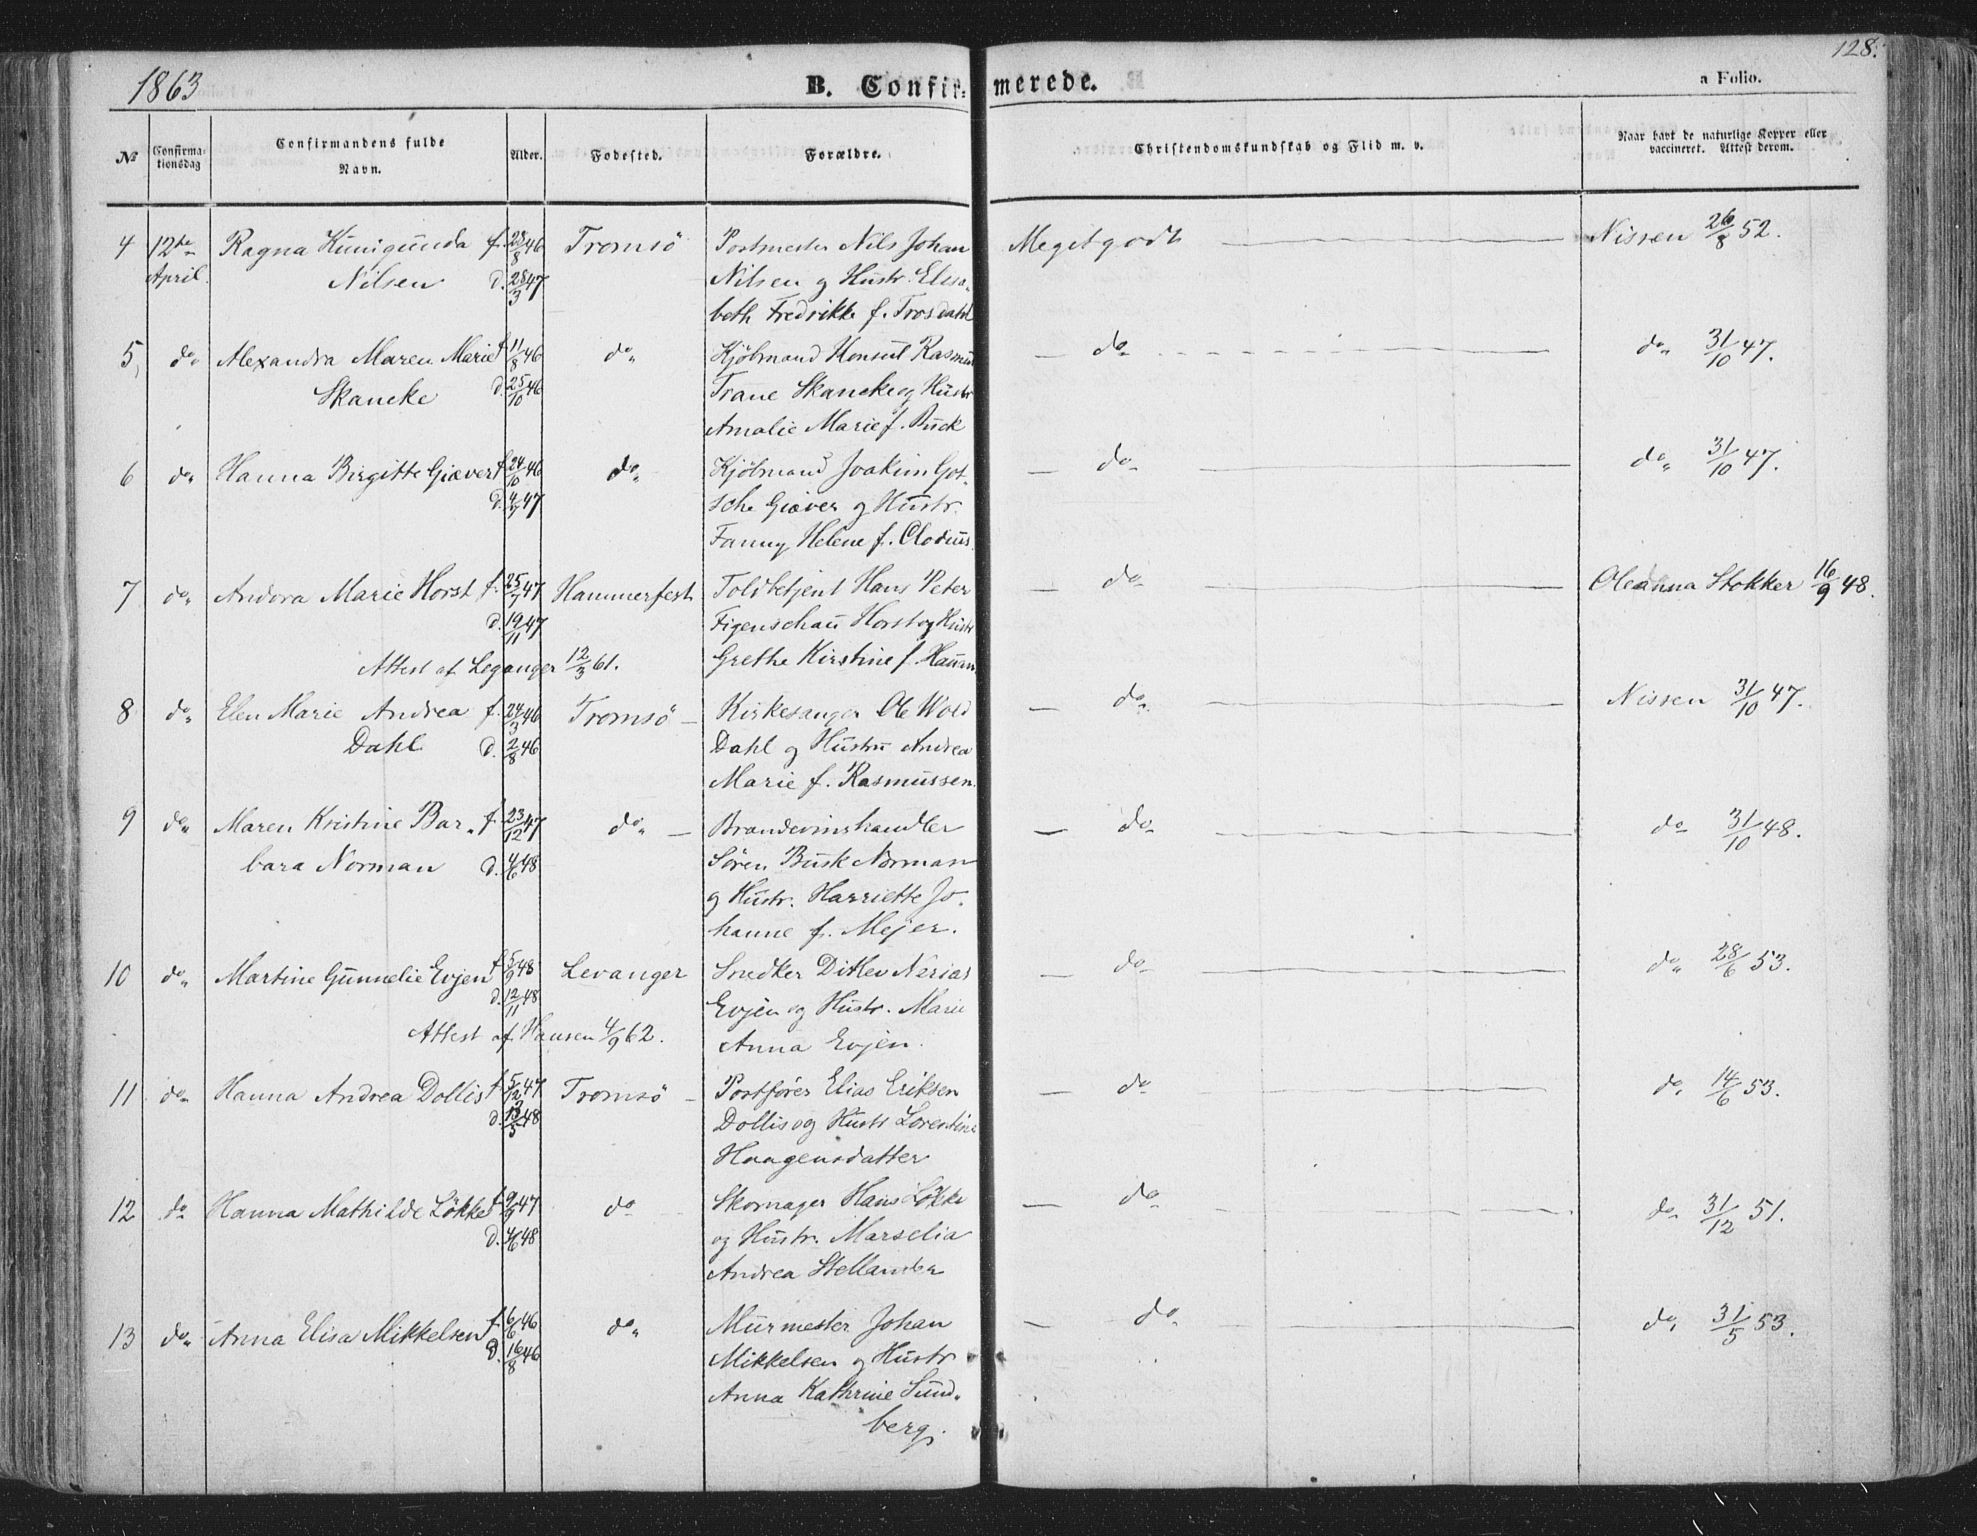 1863 B. Confirmerede. a Folio. 128.
№ Confirmationsdag Confirmandens fulde Navn. Alder. Fødested. Forældre. Christendomskundskab og Flid m. v. Naar havt de naturlige Kopper eller vaccineret. Attest derom.
4 12te Ragna Kunigunda f. 28/8 46 Tromsö Postmester Nils Johan Meget godt Nissen 26/8 52.
April. Nilsen d. 28/3 47 Nilsen og Hustr. Elisa-
beth Fredrikke f. Trosdahl
5, do Alexandra Maren Marie f. 11/8 46 do Kjöbmand Konsul Rasmus — do do 31/10 47.
Skancke d. 25/10 46 Trane Skancke og Hustr
Amalie Marie f. Buck
6 do Hanna Birgitte Giæver f. 24/10 46 do Kjöbmand Joakim Got- — do do 31/10 47.
d. 4/7 47 sche Giæver og Hustr.
Fanny Helene f. Clodius.
7 do Andora Marie Horst f. 25/7 47 Hammerfest Toldbetjent Hans Peter — do Oleanna Stokker 16/9 48.
d. 19/11 47 Figenschau Horst og Hustr
Attest af Leganger 12/3 61. Grethe Kirstine f. Hauan
8 do Elen Marie Andrea f. 24/3 46 Tromsö — Kirkesanger Ole Wold — do Nissen 31/10 47.
Dahl d. 2/8 46 Dahl og Hustru Andrea
Marie f. Rasmussen.
9 do Maren Kristine Bar- f. 23/12 47 do — Brændevinshandler — do do 31/10 48.
bara Norman d. 4/6 48 Sören Busk Norman
og Hustr. Harriette Jo-
hanne f. Mejer.
10 do Martine Gunnelie Evjen f. 5/9 48 Levanger Snedker Ditlev Nerias — do do 28/6 53.
d. 12/11 48 Evjen og Hustr. Marie
Attest af Hansen 4/9 62. Anna Evjen.
11 do Hanna Andrea Dollis f. 5/12 47 Tromsö — Postförer Elias Eriksen — do do 14/6 53.
d. 48 Dollis og Hustr Lorentine
Haagensdatter
12 do Hanna Mathilde Lökke f. 9/9 47 do Skomager Hans Lökke — do do 31/12 51.
d. 4/6 48 og Hustr. Marselia
Andrea Stellander
13 do Anna Elisa Mikkelsen f. 6/6 46 do Murmester Johan — do do 31/5 53.
d. 16/8 46 Mikkelsen og Hustr
Anna Kathrine Sund-
berg.